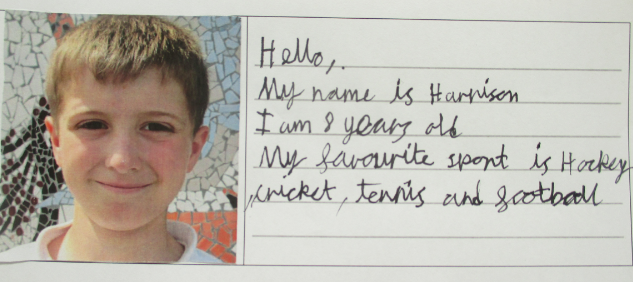 Hello,.
My name is Harrison
I am 8 years old
My favourite sport is Hockey
,cricket, tennis and football